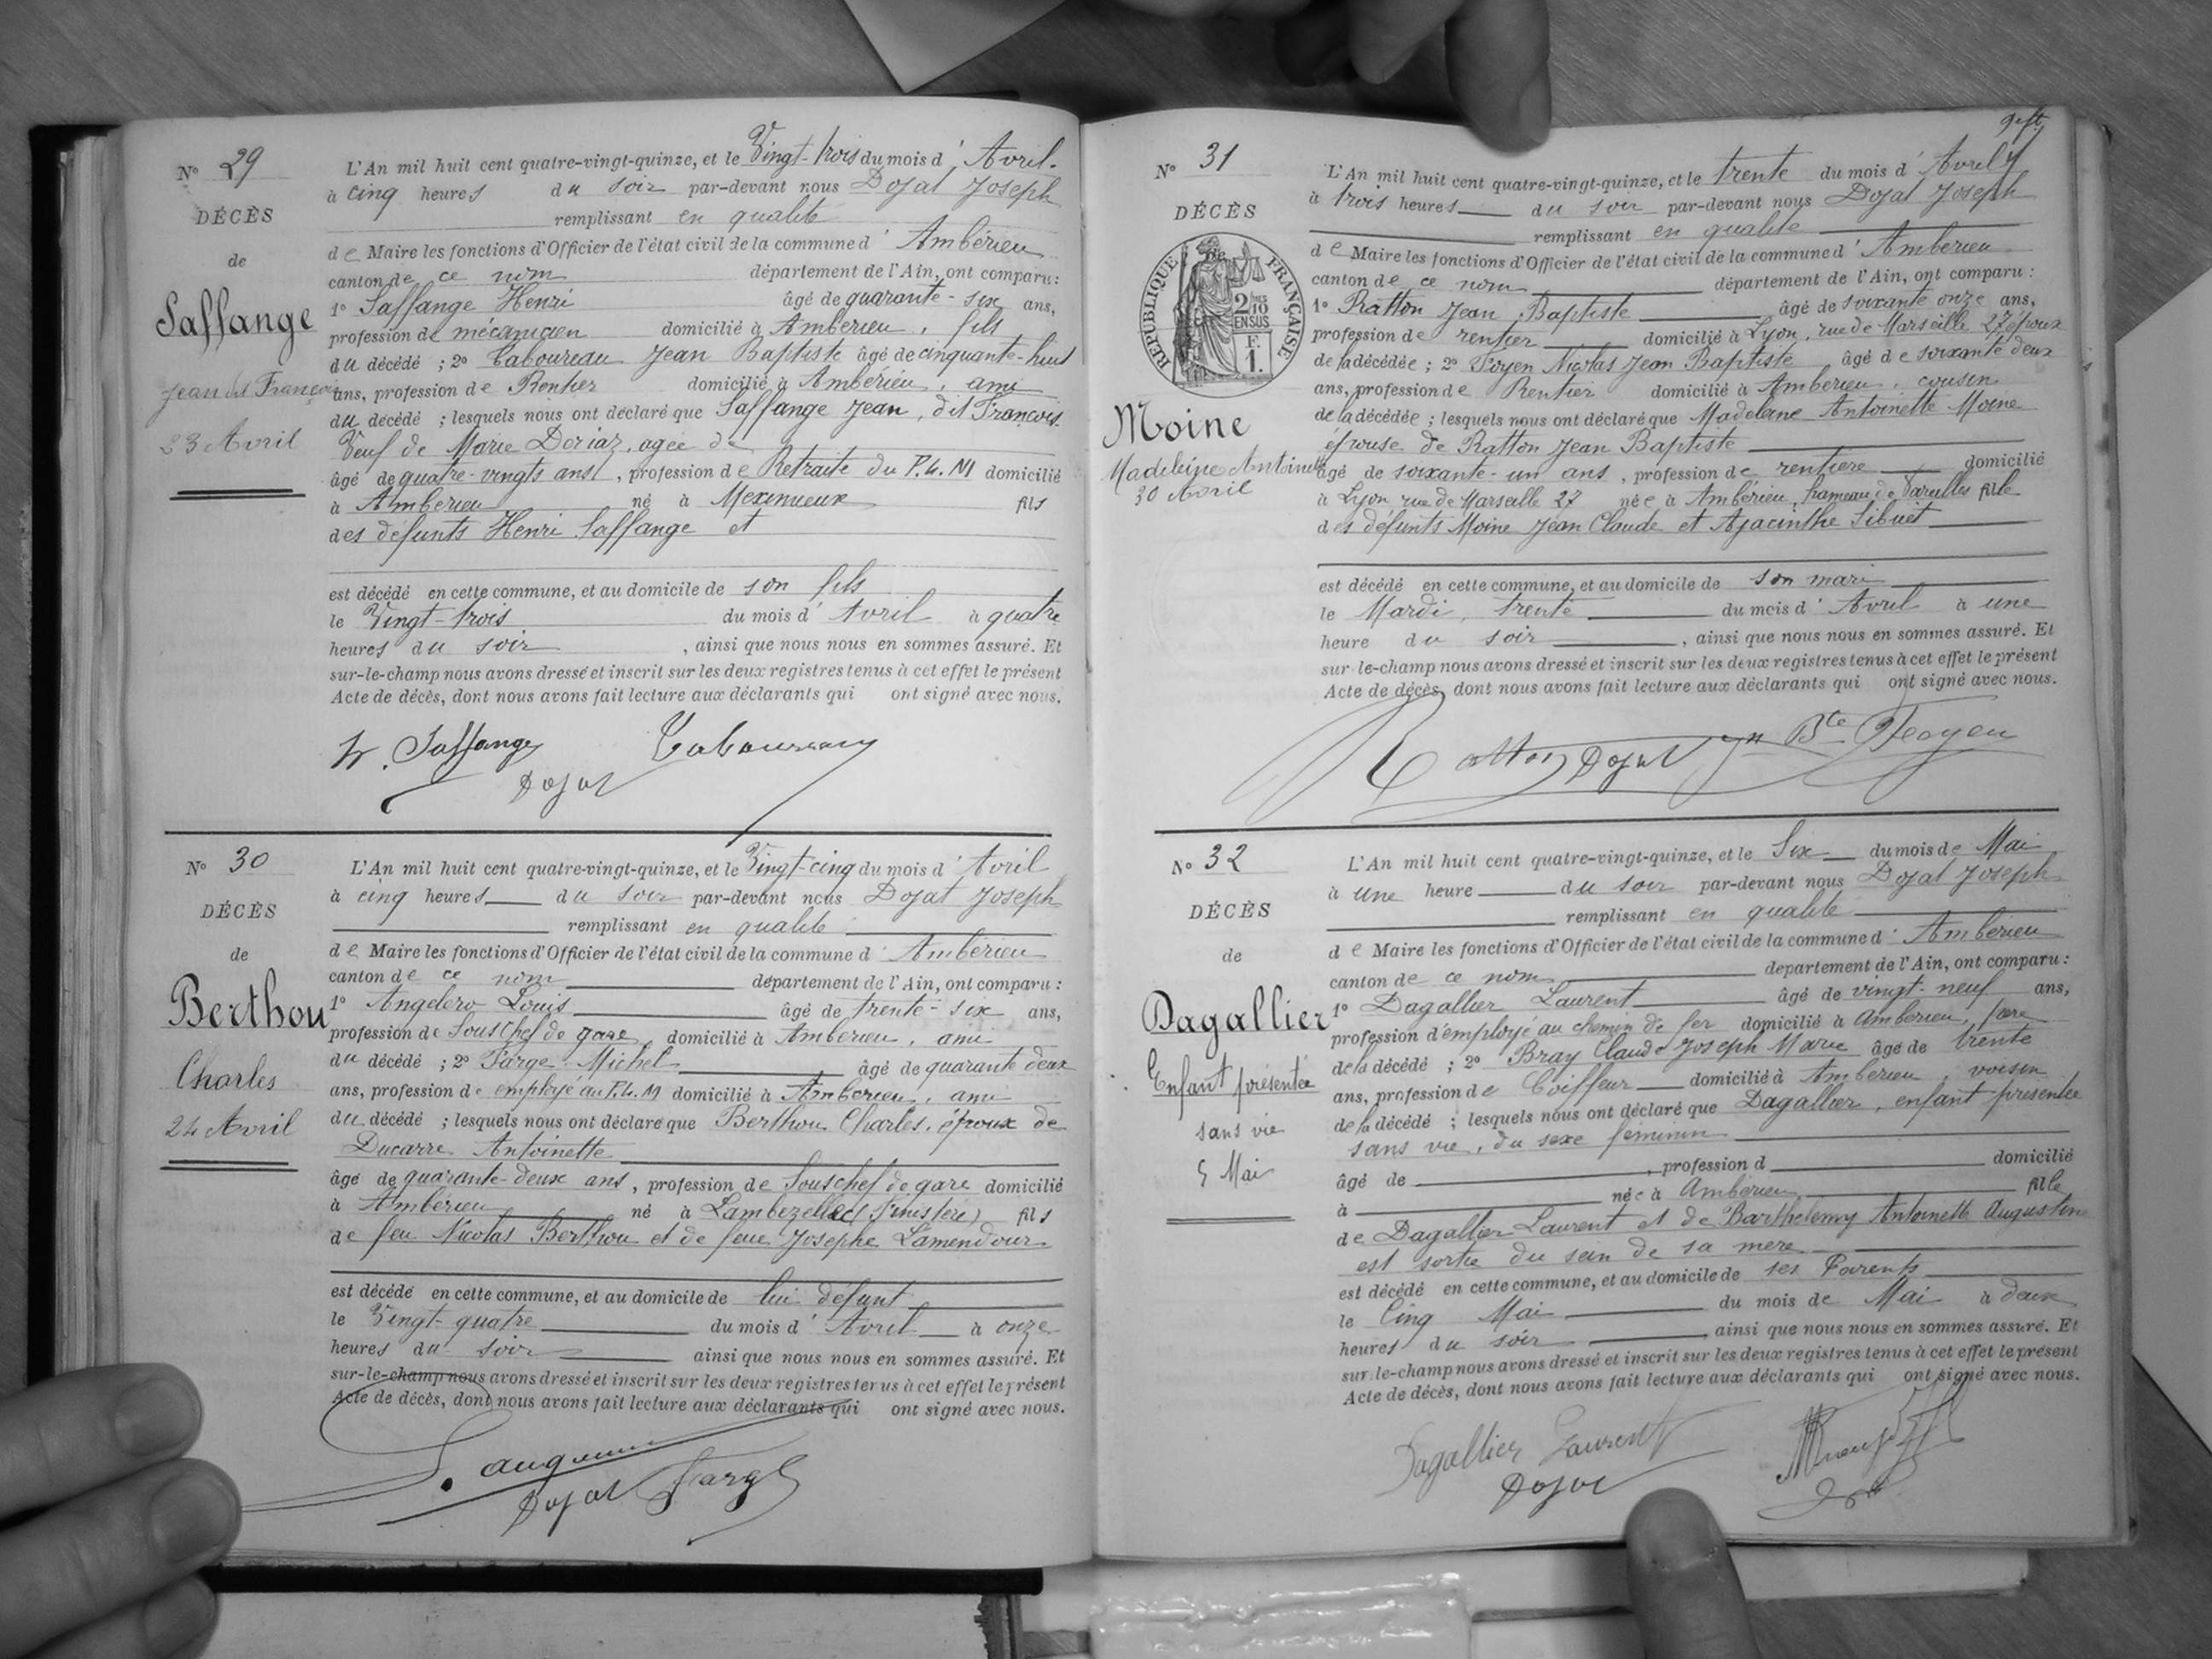 N° 29
DÉCÈS
de
Saffange
Jean dit François
23 Avril
L'An mil huit cent quatre-vingt-quinze, et le Vingt-trois du mois d'Avril
à cinq heures du soir par-devant nous Dojat Joseph
remplissant en qualité
de Maire les fonctions d'Officier de l'état civil de la commune d'Ambérieu
canton de ce nom département de l'Ain, ont comparu :
1° Saffange Henri âgé de quarante-six ans,
profession de mécanicien domicilié à Ambérieu, fils
du décédé ; 2° Caboureau Jean Baptiste âgé de cinquante-huit
ans, profession de Rentier domicilié à Ambérieu, ami
du décédé ; lesquels nous ont déclaré que Saffange Jean, dit François
Veuf de Marie Doriaz, agée de
âgé de quatre-vingts ans, profession de Retraité du P.L.M domicilié
à Ambérieu né à Meximieux fils
des défunts Henri Saffange et
est décédé en cette commune, et au domicile de son fils
le Vingt-trois du mois d'Avril à quatre
heures du soir, ainsi que nous nous en sommes assuré. Et
sur-le-champ nous avons dressé et inscrit sur les deux registres tenus à cet effet le présent
Acte de décès, dont nous avons fait lecture aux déclarants qui ont signé avec nous.
H. Saffange Caboureau
Dojat
N° 30
DÉCÈS
de
Berthou
Charles
24 Avril
L'An mil huit cent quatre-vingt-quinze, et le Vingt-cinq du mois d'Avril
à cinq heures du soir par-devant nous Dojat Joseph
remplissant en qualité
de Maire les fonctions d'Officier de l'état civil de la commune d'Ambérieu
canton de ce nom département de l'Ain, ont comparu :
1° Angelero Louis âgé de trente-six ans,
profession de Sous chef de gare domicilié à Ambérieu, ami
du décédé ; 2° Farge Michel âgé de quarante deux
ans, profession de employé au P.L.M domicilié à Ambérieu, ami
du décédé ; lesquels nous ont déclaré que Berthou Charles, époux de
Ducarre Antoinette
âgé de quarante-deux ans, profession de Sous chef de gare domicilié
à Ambérieu né à Lambezellec (Finistère) fils
de feu Nicolas Berthou et de feue Josephe Lamendour
est décédé en cette commune, et au domicile de lui défunt
le Vingt-quatre du mois d'Avril à onze
heures du soir ainsi que nous nous en sommes assuré. Et
sur-le-champ nous avons dressé et inscrit sur les deux registres tenus à cet effet le présent
Acte de décès, dont nous avons fait lecture aux déclarants qui ont signé avec nous.
Dojat Farge
N° 31
DÉCÈS
de
RÉPUBLIQUE FRANÇAISE
2/10 EN SUS
F. 1.
Moine
Madeleine Antoinette
30 Avril
L'An mil huit cent quatre-vingt-quinze, et le trente du mois d'Avril
à trois heures du soir par-devant nous Dojat Joseph
remplissant en qualité
de Maire les fonctions d'Officier de l'état civil de la commune d'Ambérieu
canton de ce nom département de l'Ain, ont comparu :
1° Ratton Jean Baptiste âgé de soixante onze ans,
profession de rentier domicilié à Lyon, rue de Marseille 27 époux
de la décédée ; 2° Foyen Nicolas Jean Baptiste âgé de soixante deux
ans, profession de Rentier domicilié à Ambérieu, cousin
de la décédée ; lesquels nous ont déclaré que Madeleine Antoinette Moine
épouse de Ratton Jean Baptiste
âgé de soixante-un ans, profession de rentière domicilié
à Lyon rue de Marseille 27 née à Ambérieu, hameau de Vareilles fille
des défunts Moine Jean Claude et Hyacinthe Sibuet
est décédé en cette commune, et au domicile de son mari
le Mardi, trente du mois d'Avril à une
heure du soir, ainsi que nous nous en sommes assuré. Et
sur-le-champ nous avons dressé et inscrit sur les deux registres tenus à cet effet le présent
Acte de décès, dont nous avons fait lecture aux déclarants qui ont signé avec nous.
Ratton Dojat Jn Bte Foyen
N° 32
DÉCÈS
de
Dagallier
Enfant présentée
sans vie
5 Mai
L'An mil huit cent quatre-vingt-quinze, et le Six du mois de Mai
à une heure du soir par-devant nous Dojat Joseph
remplissant en qualité
de Maire les fonctions d'Officier de l'état civil de la commune d'Ambérieu
canton de ce nom département de l'Ain, ont comparu :
1° Dagallier Laurent âgé de vingt-neuf ans,
profession d'employé au chemin de fer domicilié à Ambérieu, père
de la décédé ; 2° Bray Claude Joseph Marie âgé de trente
ans, profession de Coiffeur domicilié à Ambérieu, voisin
de la décédé ; lesquels nous ont déclaré que Dagallier, enfant présentée
sans vie, du sexe féminin
âgé de , profession d domicilié
à née à Ambérieu fille
de Dagallier Laurent et de Barthelemy Antoinette Augustine
est sortie du sein de sa mère
est décédé en cette commune, et au domicile de ses Parents
le Cinq Mai du mois de Mai à deux
heures du soir, ainsi que nous nous en sommes assuré. Et
sur-le-champ nous avons dressé et inscrit sur les deux registres tenus à cet effet le présent
Acte de décès, dont nous avons fait lecture aux déclarants qui ont signé avec nous.
Dagallier Laurent
Dojat